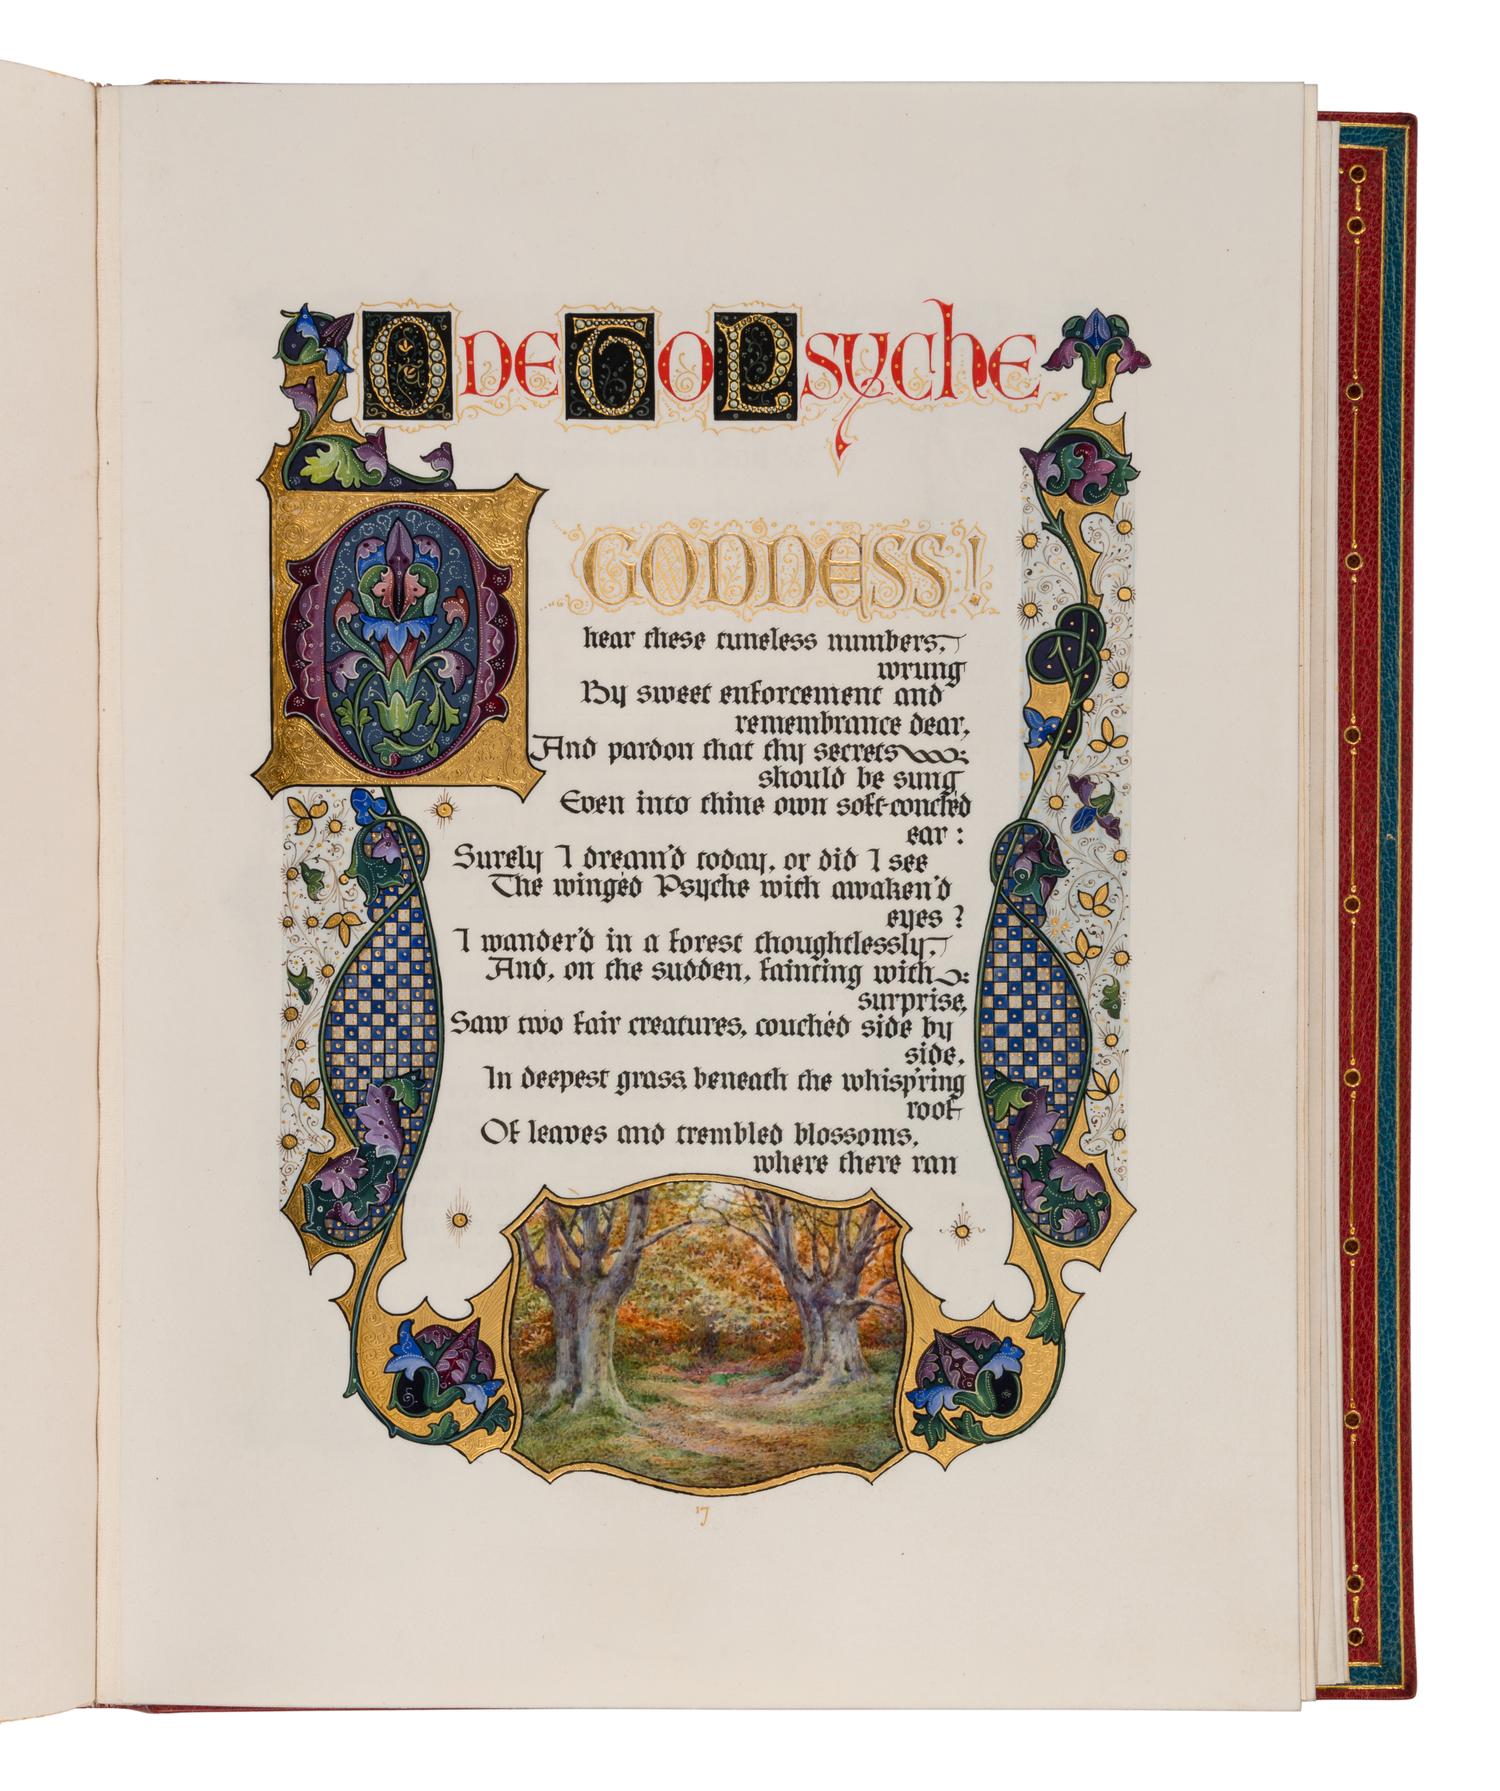 Ode To Psyche
O GODDESS!
hear these tuneless numbers,
wrung
By sweet enforcement and
remembrance dear,
And pardon that thy secrets
should be sung
Even into thine own soft-conched
ear:
Surely I dream'd today, or did I see
The wingéd Psyche with awaken'd
eyes?
I wander'd in a forest thoughtlessly,
And, on the sudden, fainting with
surprise,
Saw two fair creatures, couchéd side by
side,
In deepest grass, beneath the whisp'ring
roof
Of leaves and trembled blossoms,
where there ran
17